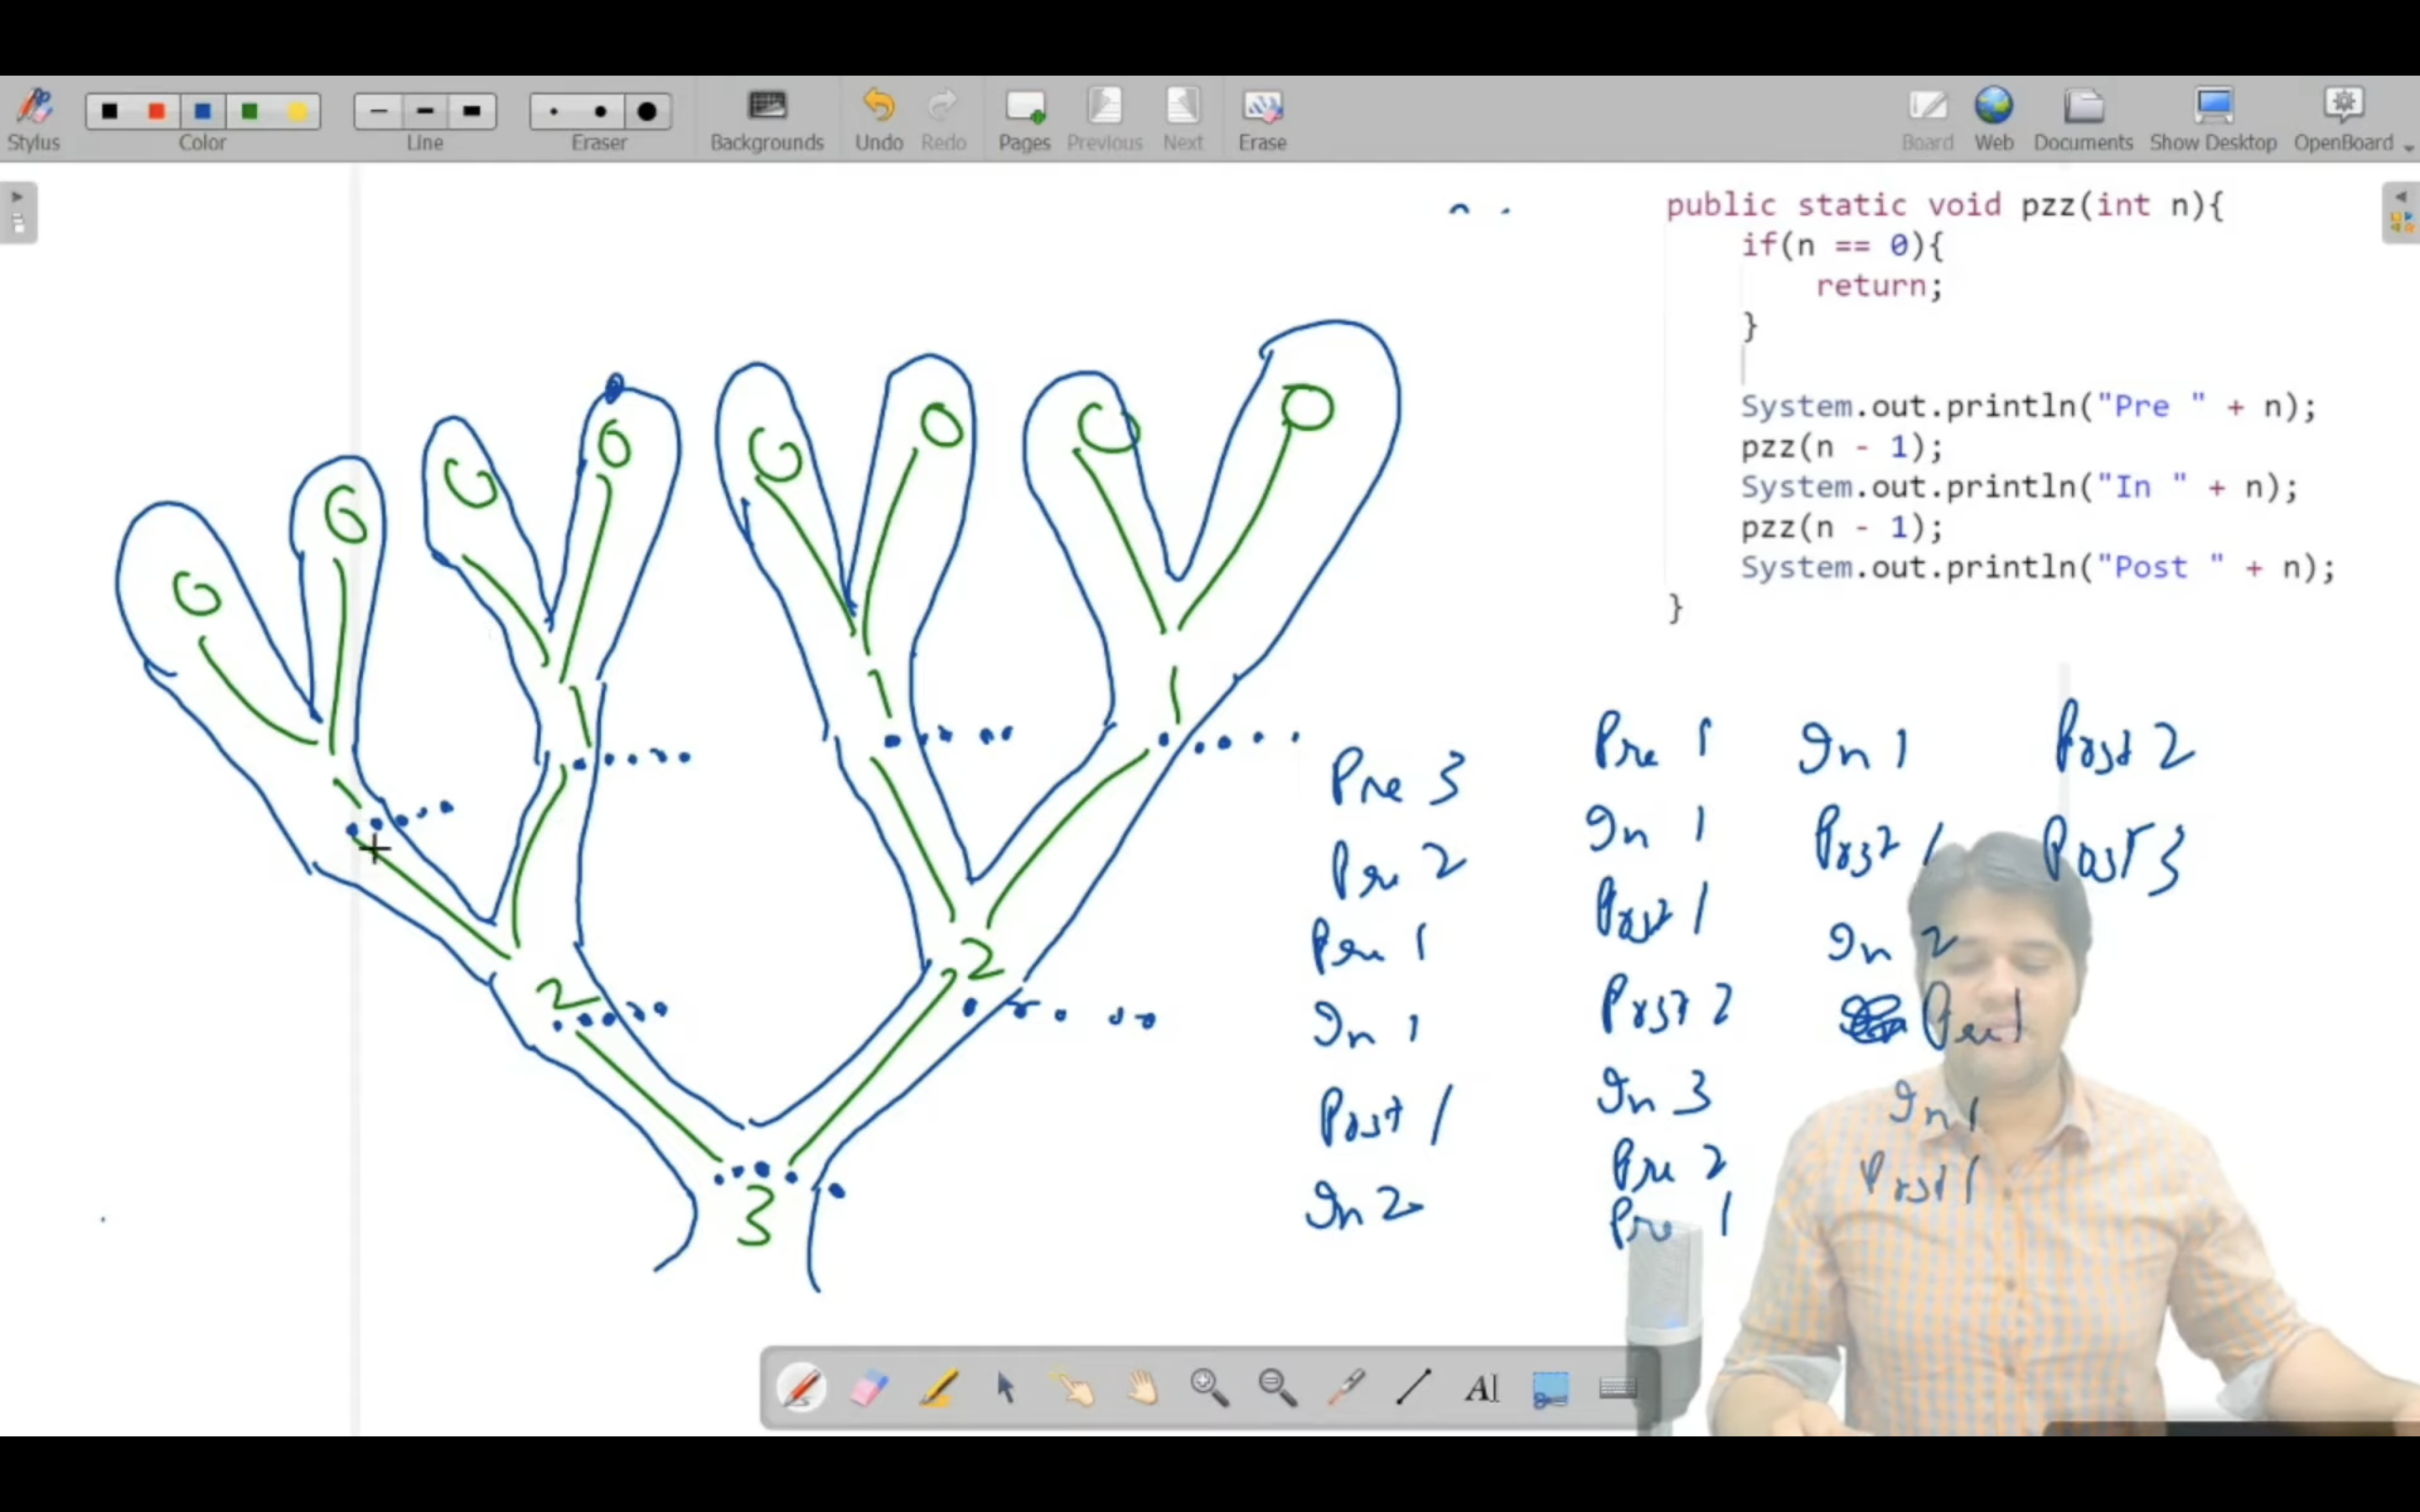 Stylus
Color
Line
Eraser
Backgrounds
Undo
Redo
Pages
Previous
Next
Erase
Board
Web
Documents
Show Desktop
OpenBoard
public static void pzz(int n){
if(n == 0){
return;
}
System.out.println("Pre " + n);
pzz(n - 1);
System.out.println("In " + n);
pzz(n - 1);
System.out.println("Post " + n);
}
0
0
0
0
0
0
0
0
1
1
1
1
2
2
3
Pre 3
Pre 2
Pre 1
In 1
Post 1
In 2
Pre 1
In 1
Post 1
Post 2
In 3
Pre 2
Pre 1
In 1
Post 1
In 2
Pre 1
In 1
Post 1
Post 2
Post 3
AI